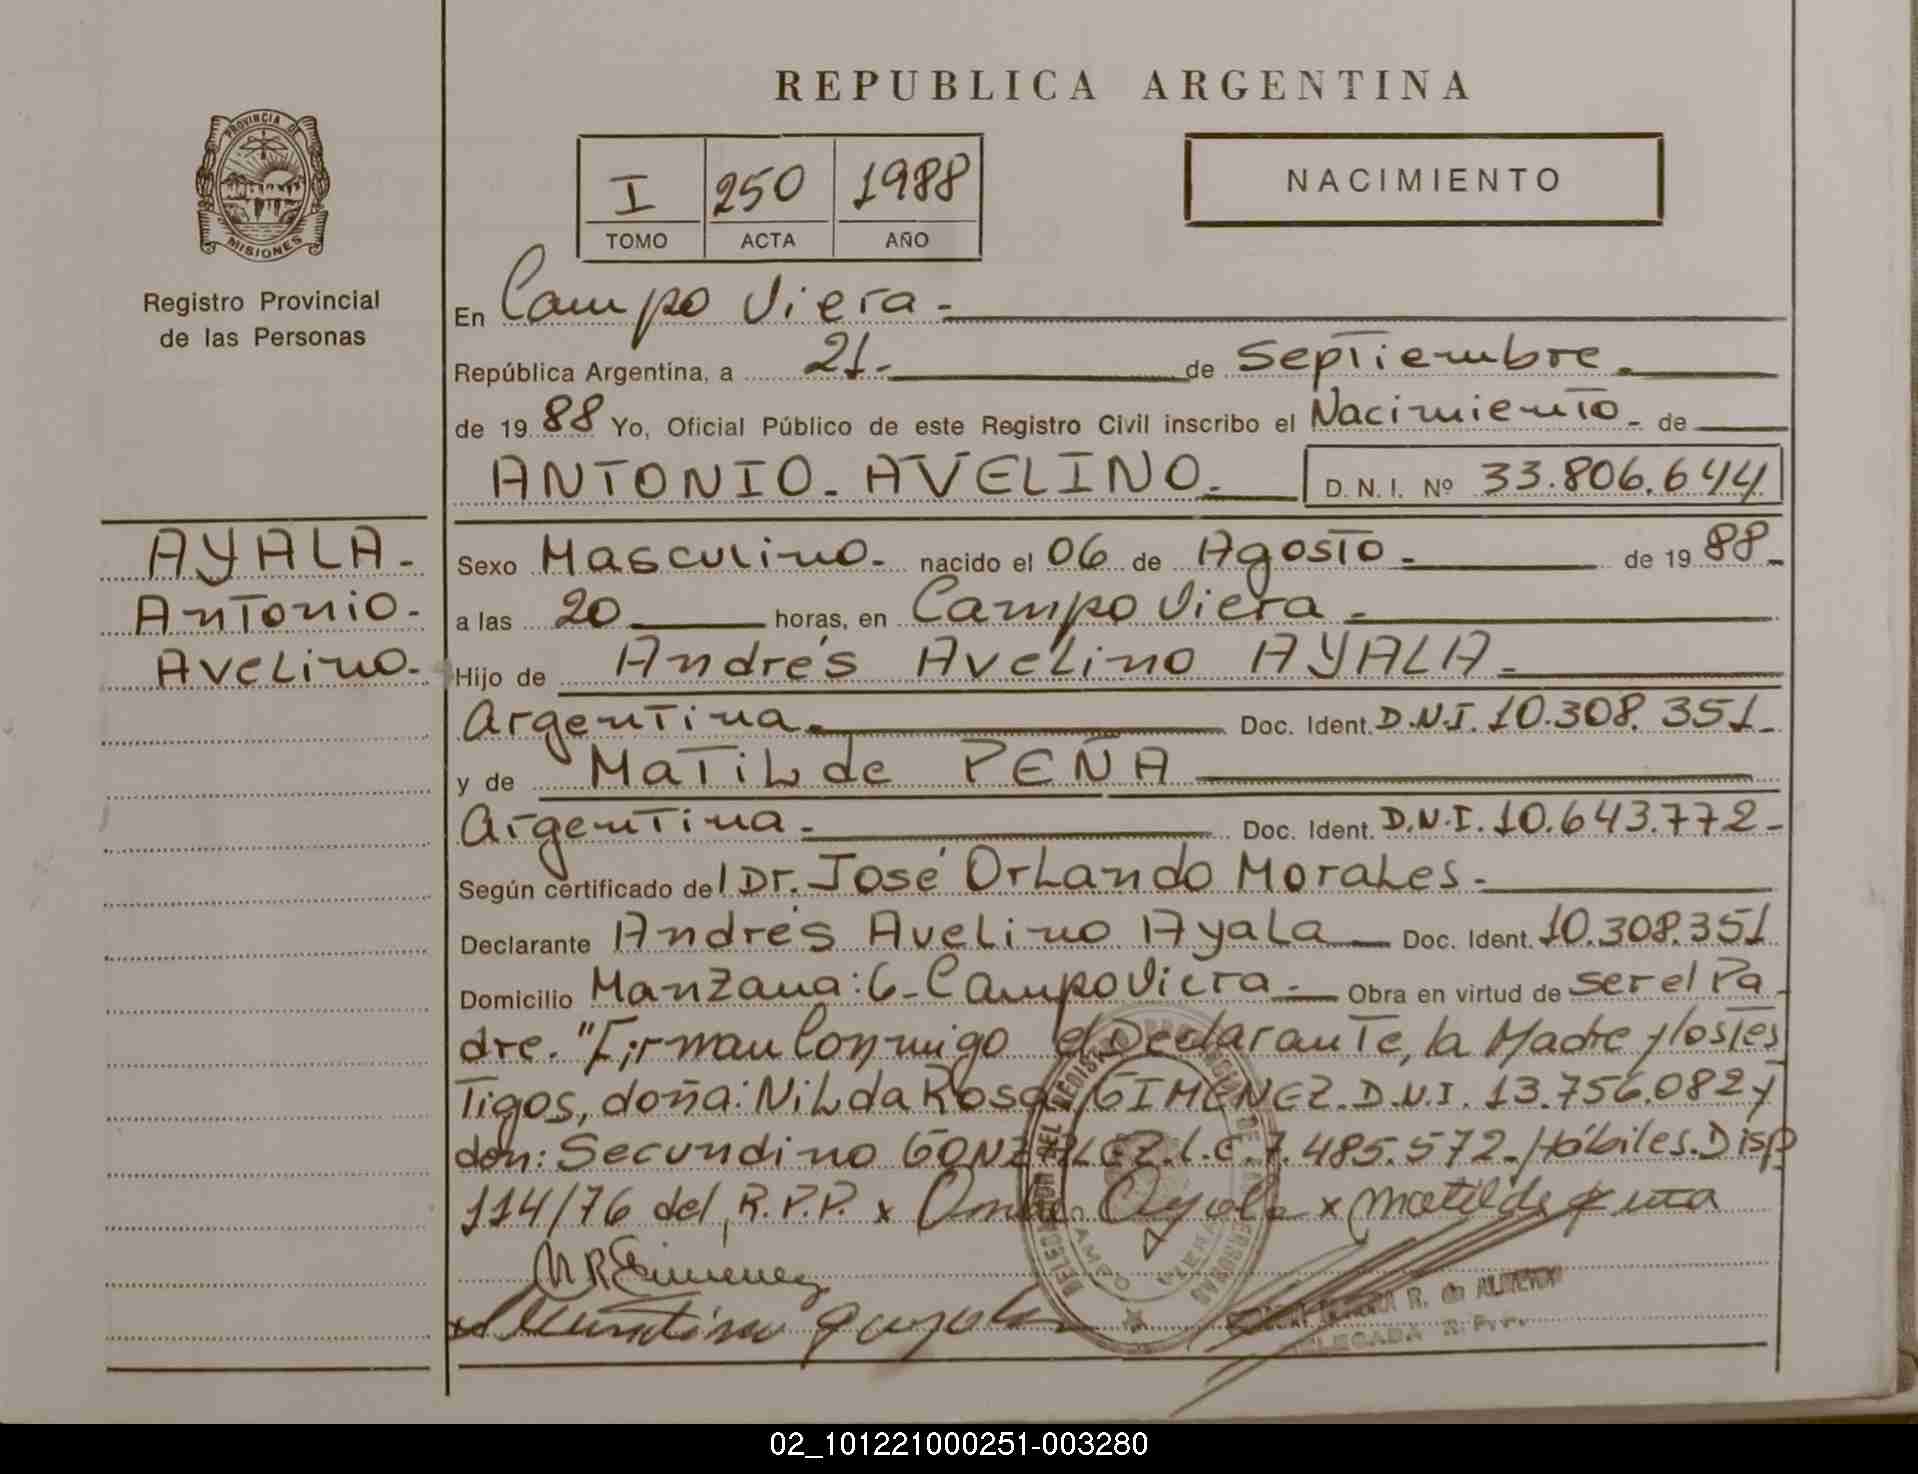 REPUBLICA ARGENTINA
PROVINCIA DE
MISIONES
Registro Provincial
de las Personas
I 250 1988
TOMO ACTA AÑO
NACIMIENTO
En Campo Viera -
República Argentina, a 21 - de Septiembre.
de 19 88 Yo, Oficial Público de este Registro Civil inscribo el Nacimiento - de
ANTONIO - AVELINO - D. N. I. Nº 33.806.644
AYALA -
Antonio -
Avelino -
Sexo Masculino - nacido el 06 de Agosto - de 19 88 -
a las 20 horas, en Campo Viera -
Hijo de Andrés Avelino AYALA -
Argentina - Doc. Ident. D.N.I. 10.308.351 -
y de Matilde PEÑA
Argentina - Doc. Ident. D.N.I. 10.643.772 -
Según certificado del Dr. José Orlando Morales -
Declarante Andrés Avelino Ayala Doc. Ident. 10.308.351
Domicilio Manzana: 6 - Campo Viera - Obra en virtud de ser el Pa
dre. "Firman Conmigo el Declarante, la Madre y los tes
tigos, doña: Nilda Rosa GIMENEZ. D.N.I. 13.756.082 y
don: Secundino GONZALEZ. L.E. 7.485.572. Hábiles. Disp
114/76 del R.P.P. x Ayala x Matilde Peña
N R Gimenez
Secundino Gonzalez
R. de ALMIRON
DELEGADA R.P.P.
02_101221000251-003280